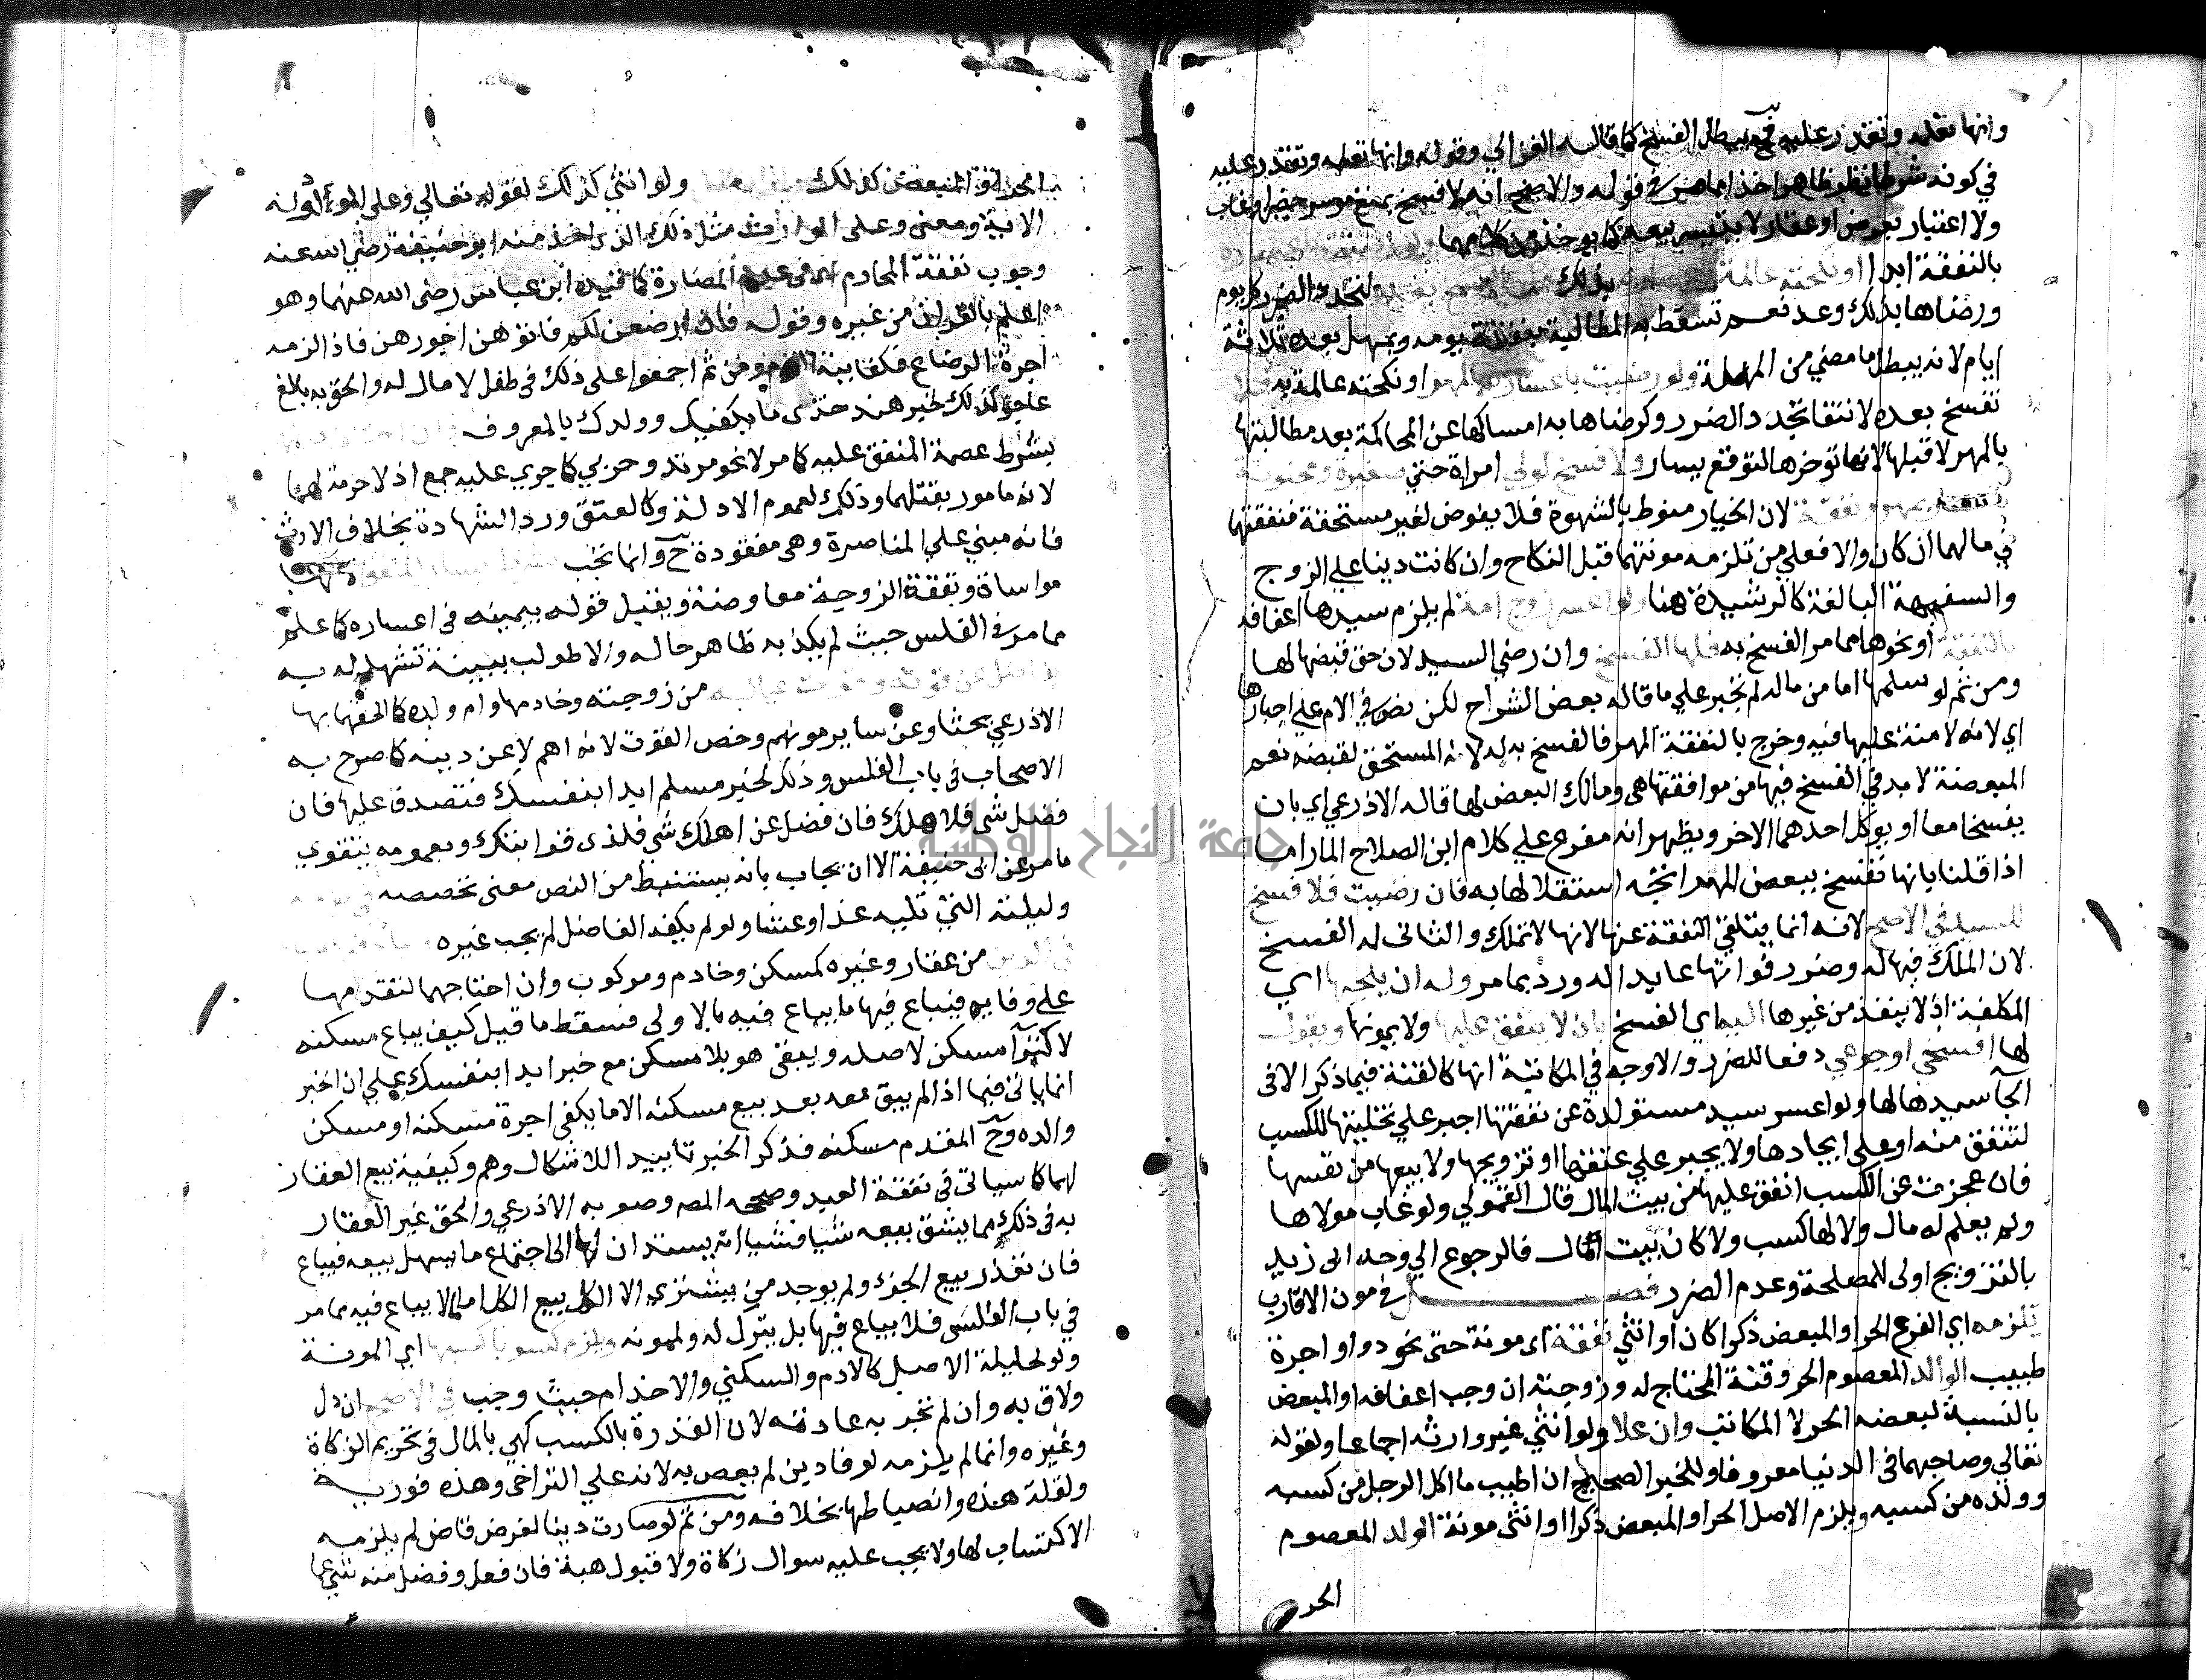 وانها تعلمه وتقتدر عليه فح يبطل الفسخ كما قاله الغزالي وقوله وانها تعلمه وتقتدر عليه
في كونه شرطا نظر ظاهر اخذا مما مر في قوله والاصح انه لا فسخ بمنع موسر حضر او غاب
ولا اعتبار بعرض او عقار لا يتيسر بيعه كما يوخذ من كلامهما
بالنفقة ابدا او نكحته عالمة بذلك لتجدد الضرر كل يوم
ورضاها بذلك وعد نعم تسقط به المطالبة بنفقة يومه ويمهل بعده ثلاثة
ايام لانه يبطل ما مضي من المهلة ولو رضيت باعساره بالمهر او نكحته عالمة به فلا
تفسخ بعده لانتفا تجدد الضرر وكرضاها به امساكها عن المحاكمة بعد مطالبتها
بالمهر لا قبلها لانها توخرها لتوقع يسار ولا فسخ لولي امراة حتي صغيرة ومجنونة
باعسار بمهر ونفقة لان الخيار منوط بالشهوة فلا يفوض لغير مستحقه فنفقتهما
في مالهما ان كان والا فعلي من تلزمه مونتهما قبل النكاح وان كانت دينا علي الزوج
والسفيهة البالغة كالرشيدة هنا ولو اعسر زوج امة لم يلزم سيدها اعفافه
بالنفقة او نحوها مما مر الفسخ به فلها الفسخ وان رضي السيد لان حق قبضها لها
ومن ثم لو سلمها اما من ماله لم تجبر علي ما قاله بعض الشراح لكن نص في الام علي اجبارها
اي لانه لا منة عليها فيه وخرج بالنفقة المهر فالفسخ به له لانه المستحق لقبضه نعم
المبعضة لا بد في الفسخ فيها من موافقتها هي ومالك البعض لها قاله الاذرعي اي بان
يفسخا معا او يوكل احدهما الاخر ويظهر انه مفرع علي كلام ابن الصلاح المار اما
اذا قلنا بانها تفسخ ببعض المهر اتجه استقلالها به فان رضيت فلا فسخ
للسيد في الاصح لانه انما يتلقي النفقة عنها لانها لا تملك والثاني له الفسخ
لان الملك فيها له وضرر فواتها عايد اليه ورد بما مر وله ان يلجيها اي
المكلفة اذ لا ينفذ من غيرها اليه اي الفسخ بان لا ينفق عليها ولا يمونها ويقول
لها افسخي او جوعي دفعا للضرر والاوجه في المكاتبة انها كالقنة فيما ذكر الا في
الجا سيدها لها ولو اعسر سيد مستولدة عن نفقتها اجبر علي تخليتها للكسب
لتنفق منه او علي ايجارها ولا يجبر علي عتقها او تزويجها ولا بيعها من نفسها
فان عجزت عن الكسب انفق عليها من بيت المال قال القمولي ولو غاب مولاها
ولم يعلم له مال ولا لها كسب ولا كان بيت المال فالرجوع الي وجه ابي زيد
بالتزويج اولي للمصلحة وعدم الضرر فصل في مون الاقارب
يلزمه اي الفرع الحر او المبعض ذكرا كان او انثي نفقة اي مونة حتي نحو دوا واجرة
طبيب الوالد المعصوم الحر وقنه المحتاج له وزوجته ان وجب اعفافه او المبعض
بالنسبة لبعضه الحر لا المكاتب وان علا ولو انثي غير وارثه اجماعا ولقوله
تعالي وصاحبهما في الدنيا معروفا وللخبر الصحيح ان اطيب ما اكل الرجل من كسبه
وولده من كسبه ويلزم الاصل الحر او المبعض ذكرا او انثي مونة الولد المعصوم
الحر
الحر او المبعض كذلك ولو انثي كذلك لقوله تعالي وعلي المولود له
الاية ومعني وعلي الوارث مثل ذلك الذي اخذ منه ابو حنيفة رضي الله عنه
وجوب نفقة المحارم اي في عدم المضارة كما قيده ابن عباس رضي الله عنهما وهو
اعلم بالقران من غيره وقوله فان ارضعن لكم فاتوهن اجورهن فاذا لزمه
اجرة الرضاع فكفايته الزم ومن ثم اجمعوا علي ذلك في طفل لا مال له والحق به بالغ
عاجز كذلك لخبر هند خذي ما يكفيك وولدك بالمعروف
بشرط عصمة المنفق عليه كما مر لا نحو مرتد وحربي كما جري عليه جمع اذ لا حرمة لهما
لانه مامور بقتلهما وذلك لعموم الادلة وكالعتق ورد الشهادة بخلاف الارث
فانه مبني علي المناصرة وهي مفقودة ح وانما تجب بشرط يسار المنفق لانها
مواساة ونفقة الزوجية معاوضة ويقبل قوله بيمينه في اعساره كما علم
مما مر في الفلس حيث لم يكذبه ظاهر حاله والا طولب ببينة تشهد له به
بفاضل عن قوته وقوت عياله من زوجته وخادمها وام ولده كما الحقها بها
الاذرعي بحثا وعن ساير مونهم وخص القوت لانه اهم لا عن دينه كما صرح به
الاصحاب في باب الفلس وذلك لخبر مسلم ابدا بنفسك فتصدق عليها فان
فضل شي فلاهلك فان فضل عن اهلك شي فلذي قرابتك وبعمومه يتقوي
ما مر عن ابي حنيفة الا ان يجاب بانه يستنبط من النص معني تخصصه في يومه
وليلته التي تليه غدا وعشا ولو لم يكف الفاضل لم يجب غيره
في الدين من عقار وغيره كمسكن وخادم ومركوب وان احتاجهما لتقدمها
علي وفايه فيباع فيها ما يباع فيه بالاولي فسقط ما قيل كيف يباع مسكنه
لاكترا مسكن لاصله ويبقي هو بلا مسكن مع خبر ابدا بنفسك علي ان الخبر
انما ياتي فيما اذا لم يبق معه بعد بيع مسكنه الا ما يكفي اجرة مسكنه او مسكن
والده وح المقدم مسكنه فذكر الخبر تاييدا للاشكال وهم وكيفية بيع العقار
لهما كما سياتي في نفقة العبد وصححه المص وصوبه الاذرعي والحق غير العقار
به في ذلك مما يشق بيعه شيا فشيا انه يستدان لها الي اجتماع ما يسهل بيعه فيباع
فان تعذر بيع الجزء ولم يوجد من يشتري الا الكل بيع الكل اما ما لا يباع فيه مما مر
في باب الفلس فلا يباع فيها بل يترك له ولممونه ويلزم كسوبا كسبها اي المونة
ولو لحليلة الاصل كالادم والسكني والاخدام حيث وجب في الاصح ان دل
ولاق به وان لم تجر به عادته لان القدرة بالكسب كهي بالمال في تحريم الزكاة
وغيره وانما لم يلزمه لوفا دين لم يعص به لانه علي التراخي وهذه فورية
ولقلة هذه وانضباطها بخلافه ومن ثم لو صارت دينا لفرض قاض لم يلزمه
الاكتساب لها ولا يجب عليه سوال زكاة ولا قبول هبة فان فعل وفضل منه شي عما
جامعة النجاح الوطنية